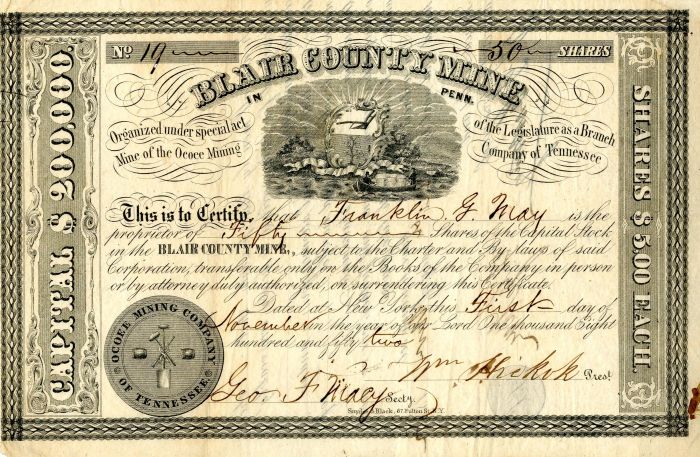 No 19 50 SHARES
BLAIR COUNTY MINE
IN PENN.
Organized under special act of the Legislature as a Branch
Mine of the Ocoee Mining Company of Tennessee
CAPITAL $200,000.
SHARES $5,00 EACH.
This is to Certify, that Franklin G. May is the
proprietor of Fifty Shares of the Capital Stock
in the BLAIR COUNTY MINE, subject to the Charter and By laws of said
Corporation, transferable only on the Books of the Company in person
or by attorney duly authorized, on surrendering this Certificate.
Dated at New York, this First day of
November in the year of our Lord One thousand Eight
hundred and fifty two
OCOEE MINING COMPANY
OF TENNESSEE.
Wm Hickok Prest.
Geo F Macy Secty.
Snyder & Black, 87 Fulton St. N.Y.